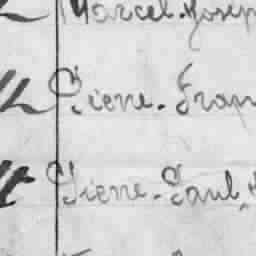 Marcel-Josep
Pierre-Fran
Pierre-Paul,